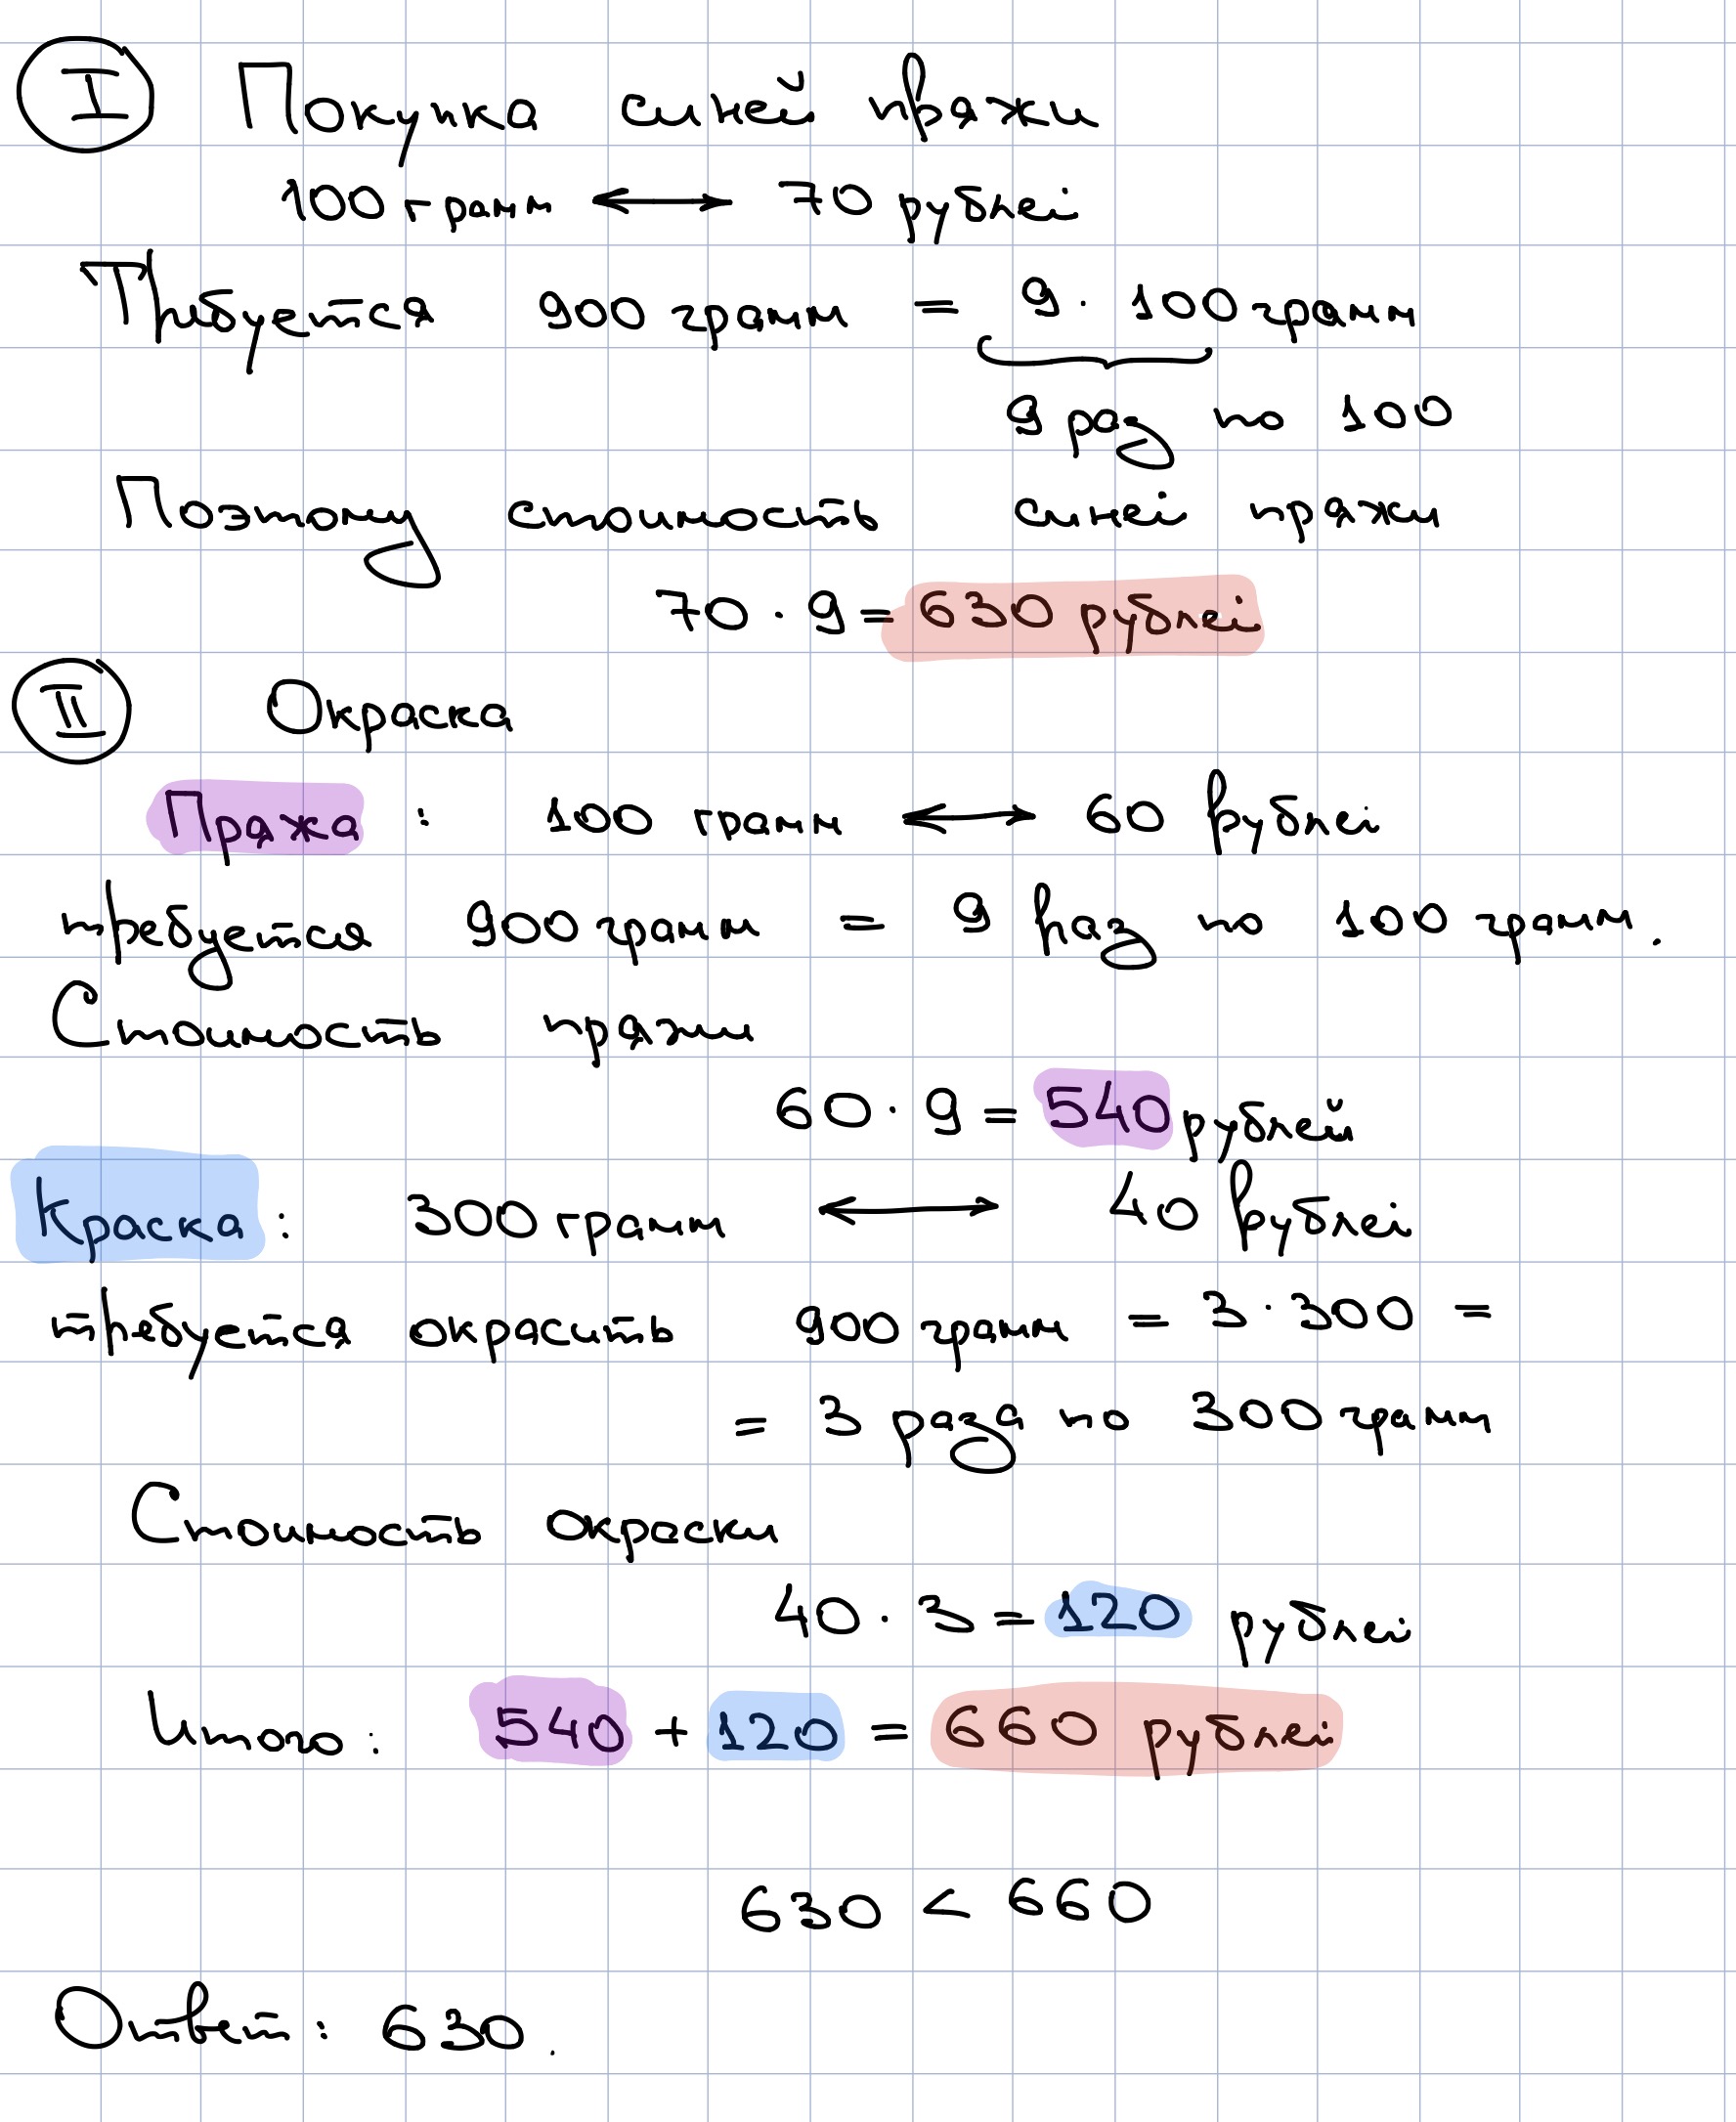 I Покупка синей пряжи
100 грамм ⟷ 70 рублей
Требуется 900 грамм = 9 · 100 грамм
9 раз по 100
Поэтому стоимость синей пряжи
70 · 9 = 630 рублей
II Окраска
Пряжа : 100 грамм ⟷ 60 рублей
требуется 900 грамм = 9 раз по 100 грамм.
Стоимость пряжи
60 · 9 = 540 рублей
Краска : 300 грамм ⟷ 40 рублей
требуется окрасить 900 грамм = 3 · 300 =
= 3 раза по 300 грамм
Стоимость окраски
40 · 3 = 120 рублей
Итого : 540 + 120 = 660 рублей
630 < 660
Ответ : 630.